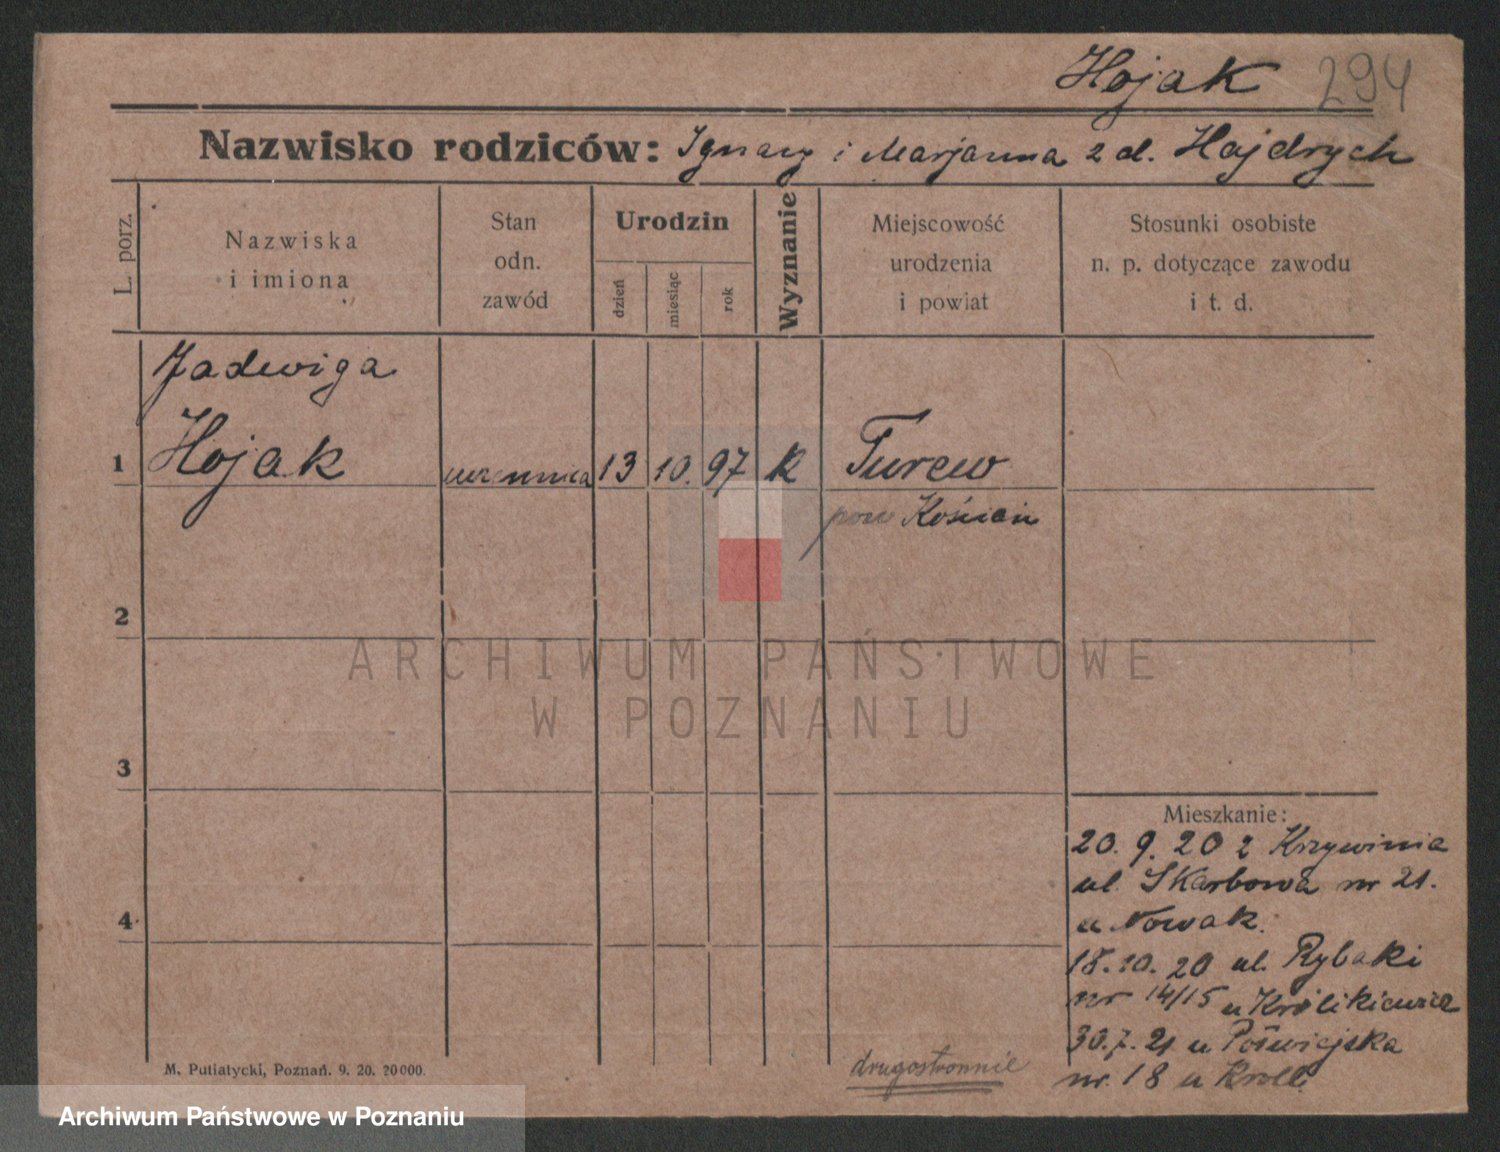 Hojak 294
Nazwisko rodziców: Ignacy i Marjanna z d. Hajdrych
L. porz.
Nazwiska
i imiona
Stan
odn.
zawód
Urodzin
dzień
miesiąc
rok
Wyznanie
Miejscowość
urodzenia
i powiat
Stosunki osobiste
n. p. dotyczące zawodu
i t. d.
Jadwiga
1 Hojak uczennica 13 10. 97 k Turew
pow Kościan
2
3
4
Mieszkanie:
20. 9. 20 z Krzywinia
ul. Skarbowa nr 21.
u Nowak.
18. 10. 20 ul. Rybaki
nr 14/15 u Królikiewicz
30. 7. 21 u
nr. 18 u Kroll
drugostronnie
M. Putiatycki, Poznań. 9. 20. 20000.
ARCHIWUM PAŃSTWOWE
W POZNANIU
Archiwum Państwowe w Poznaniu